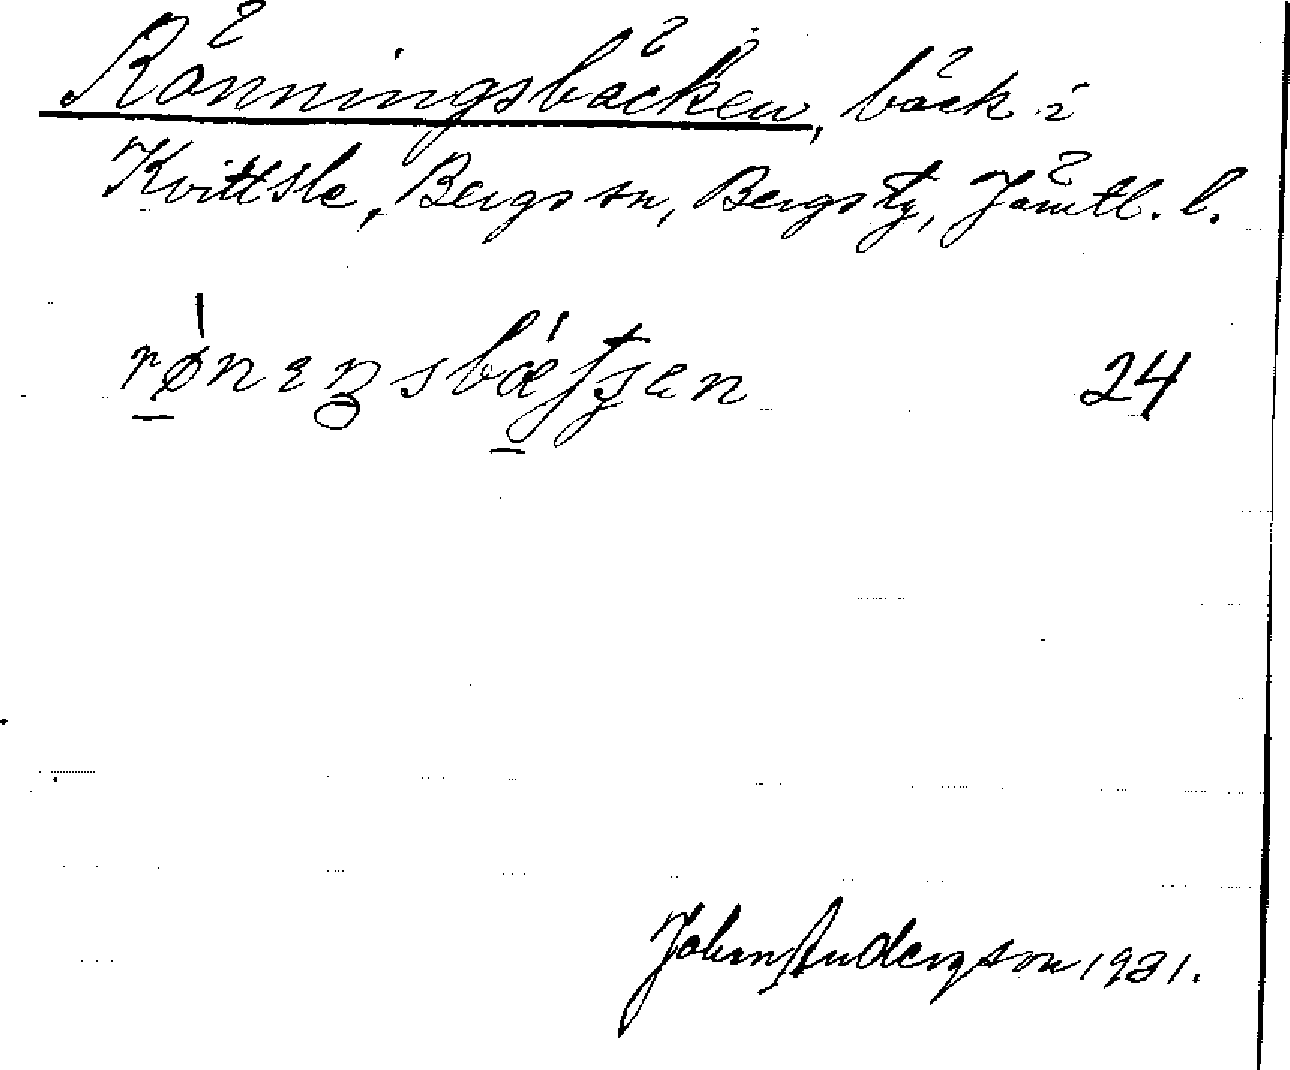 Rönningsbäcken, bäck i
Kvittsle, Bergs sn, Bergs tg, Jämtl. l.
24
John Anderzson 1931.